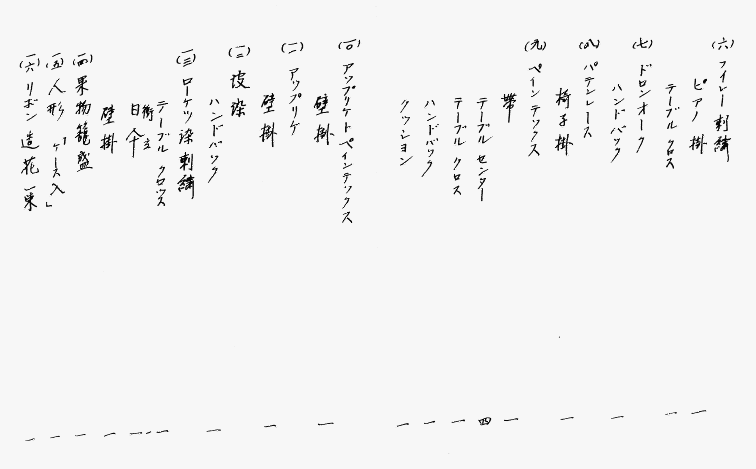 (六)フイレー刺繍
ピアノ掛 一
テーブルクロス 一
(七)ドロンオーク
ハンドバック 一
(八)パテンレース
椅子掛 一
(九)ペインテックス
帯 一
テーブルセンター 四
テーブルクロス 一
ハンドバック 一
クッション 一
(一〇)アップリケトペインテックス
壁掛 一
(一一)アップリケ
壁掛 一
(一二)皮染
ハンドバック 一
(一三)ローケツ染刺繍
テーブルクロッス 一
衝立 一
日傘 一
壁掛 一
(一四)果物籠盛 一
(一五)人形「ケース入」 一
(一六)リボン造花一束 一